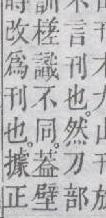 不言刊也。然刀部
訓槎識不同。葢壁
時改爲刊也。據正